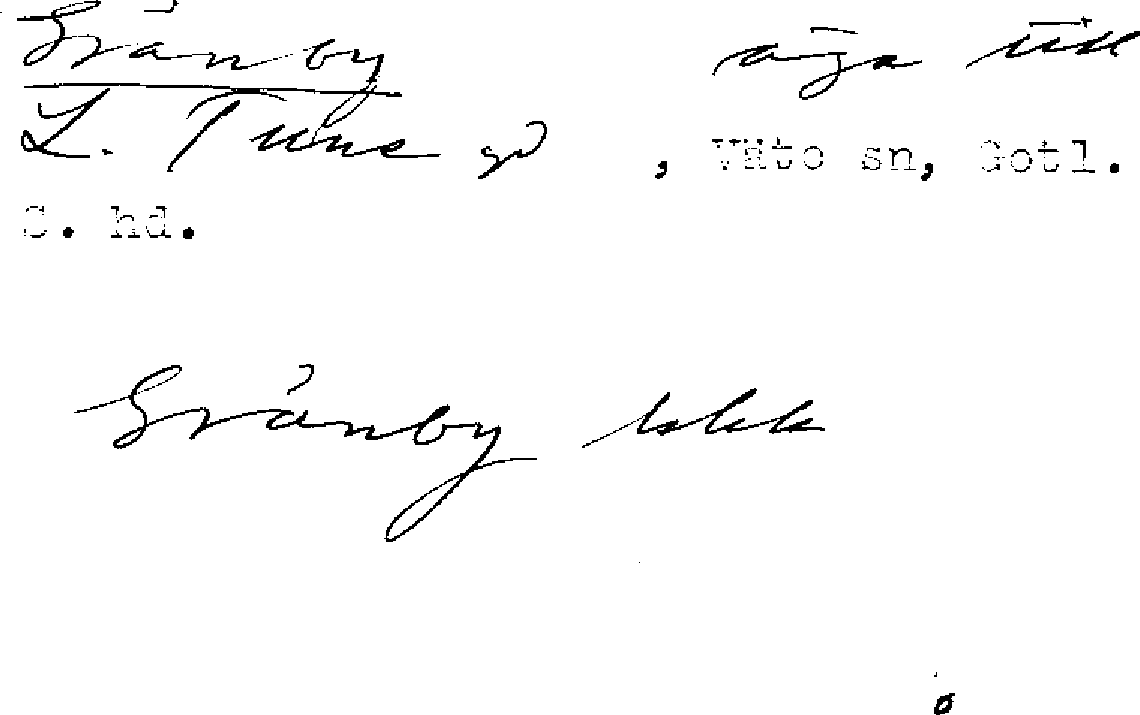 Gränby äga till
L. Tune gd , Väte sn, Gotl.
S. hd.
Gränby